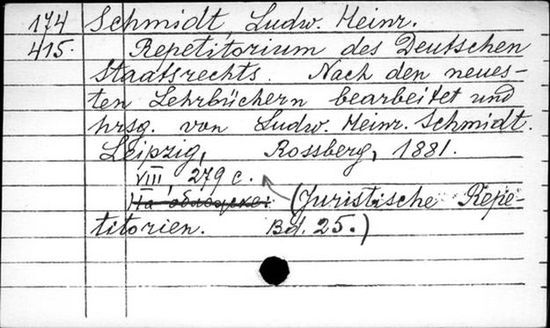 174 Schmidt, Ludw. Heinr.
415. Repetitorium des Deutschen
Staatsrechts. Nach den neues-
ten Lehrbüchern bearbeitet und
hrsg. von Ludw. Heinr. Schmidt.
Leipzig, Rossberg, 1881.
VIII, 279 с.
На обложке: (Juristische Repe-
titorien. Bd. 25.)